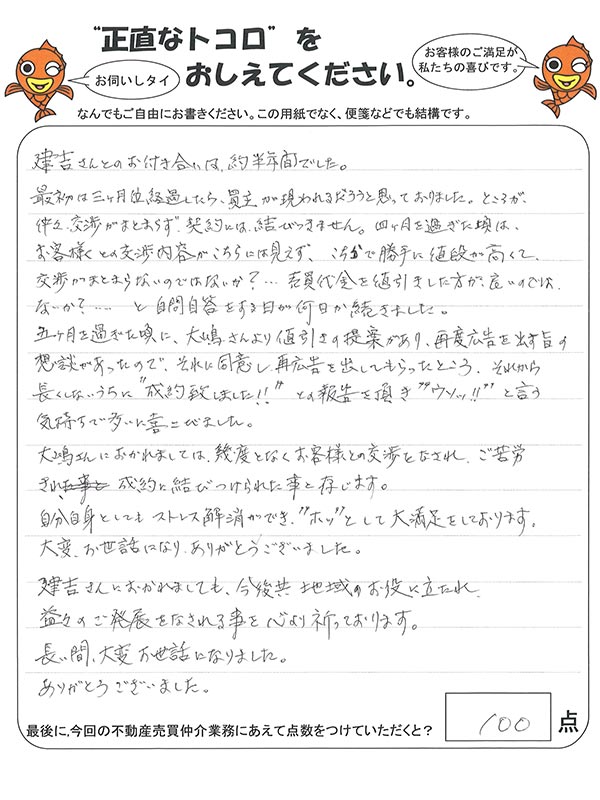 "正直なトコロ"を
おしえてください。
お伺いしタイ
お客様のご満足が
私たちの喜びです。
なんでもご自由にお書きください。この用紙でなく、便箋などでも結構です。
建吉さんとのお付き合いは、約半年間でした。
最初は三ヶ月位経過したら、買主が現われるだろうと思っておりました。ところが、
仲々、交渉がまとまらず、契約には、結びつきません。四ヶ月を過ぎた頃は、
お客様との交渉内容がこちらには見えず、こちらで勝手に値段が高くて、
交渉がまとまらないのではないか?…売買代金を値引きした方が、良いのでは、
ないか?….. と自問自答をする日が何日か続きました。
五ヶ月を過ぎた頃に、大嶋さんより値引きの提案があり、再度広告を出す旨の
想談があったので、それに同意し再広告を出してもらったところ、それから
長くしないうちに"成約致しました!!"との報告を頂き"ウソッ!!"と言う
気持ちで多いに喜こびました。
大嶋さんにおかれましては、幾度となくお客様との交渉をなされ、ご苦労
され 成約に結びつけられた事と存じます。
自分自身としてもストレス解消ができ、"ホッ"として大満足をしております。
大変、お世話になり、ありがとうございました。
建吉さんにおかれましても、今後共 地域のお役に立たれ、
益々のご発展をなされる事を心より祈っております。
長い間、大変お世話になりました。
ありがとうございました。
最後に、今回の不動産売買仲介業務にあえて点数をつけていただくと? 100 点